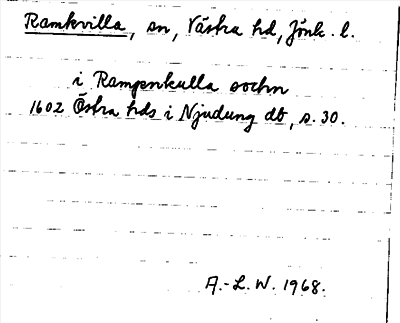 Ramkvilla, sn, Västra hd, Jönk. l.
i Rampnkulla sochn
1602 Östra hds i Njudung db, s. 30.
A.-L. W. 1968.